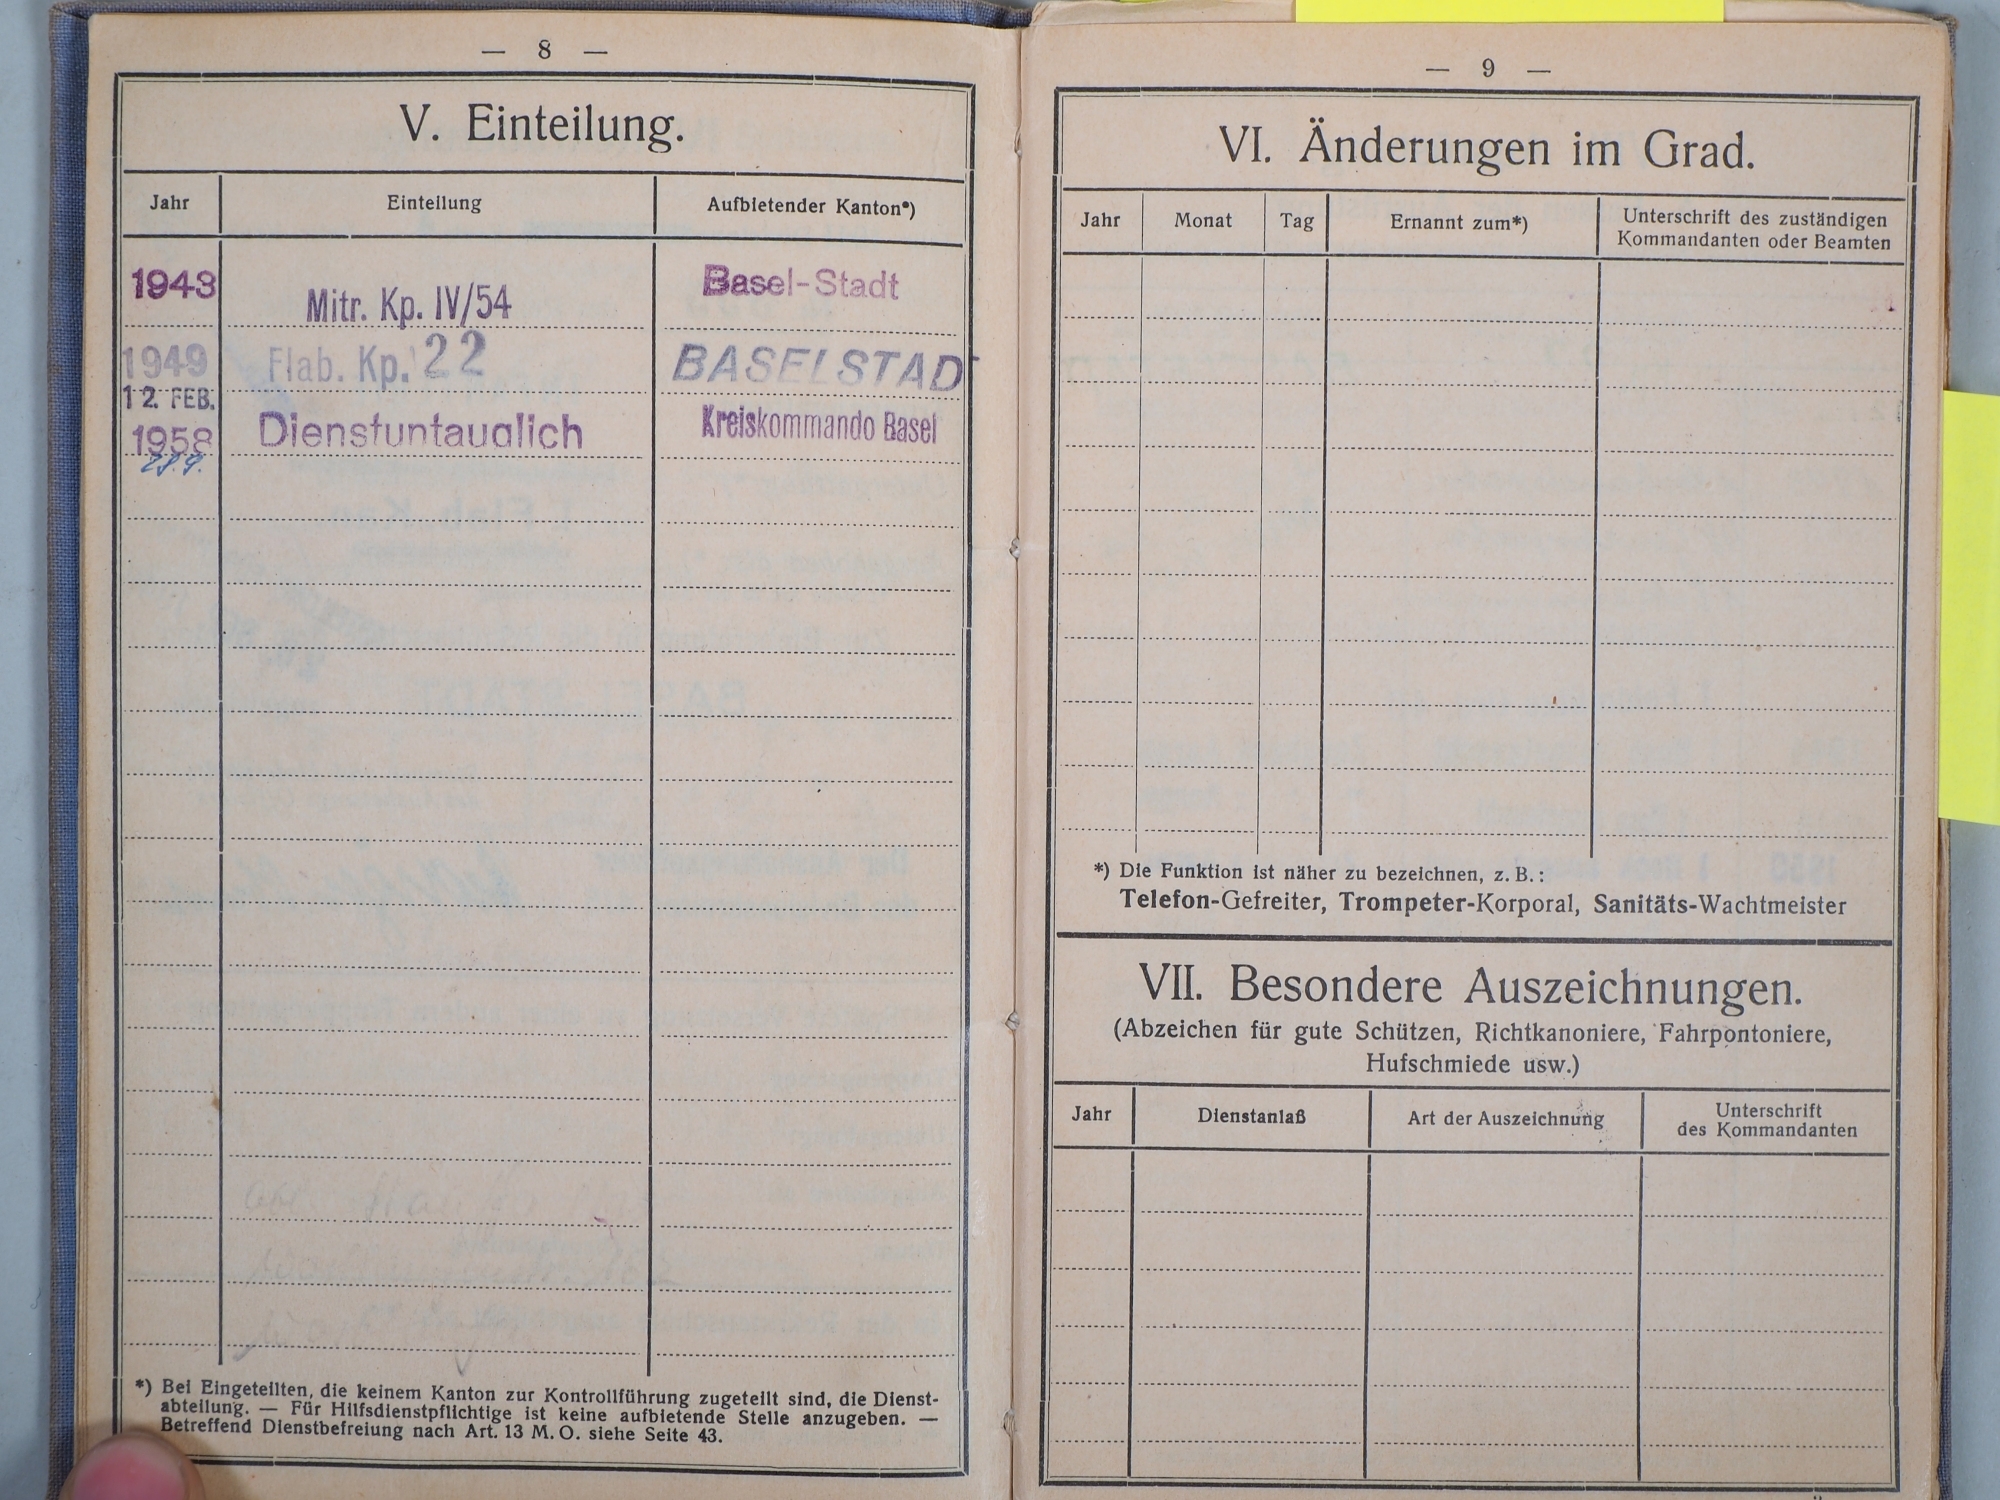 — 8 —
V. Einteilung.
Jahr Einteilung Aufbietender Kanton*)
1943 Mitr. Kp. IV/54 Basel-Stadt
1949 Flab. Kp. 22 BASELSTADT
12. FEB. 1958 Dienstuntauglich Kreiskommando Basel
*) Bei Eingeteilten, die keinem Kanton zur Kontrollführung zugeteilt sind, die Dienst-
abteilung. — Für Hilfsdienstpflichtige ist keine aufbietende Stelle anzugeben. —
Betreffend Dienstbefreiung nach Art. 13 M. O. siehe Seite 43.
— 9 —
VI. Änderungen im Grad.
Jahr Monat Tag Ernannt zum*) Unterschrift des zuständigen
Kommandanten oder Beamten
*) Die Funktion ist näher zu bezeichnen, z. B.:
Telefon-Gefreiter, Trompeter-Korporal, Sanitäts-Wachtmeister
VII. Besondere Auszeichnungen.
(Abzeichen für gute Schützen, Richtkanoniere, Fahrpontoniere,
Hufschmiede usw.)
Jahr Dienstanlaß Art der Auszeichnung Unterschrift
des Kommandanten